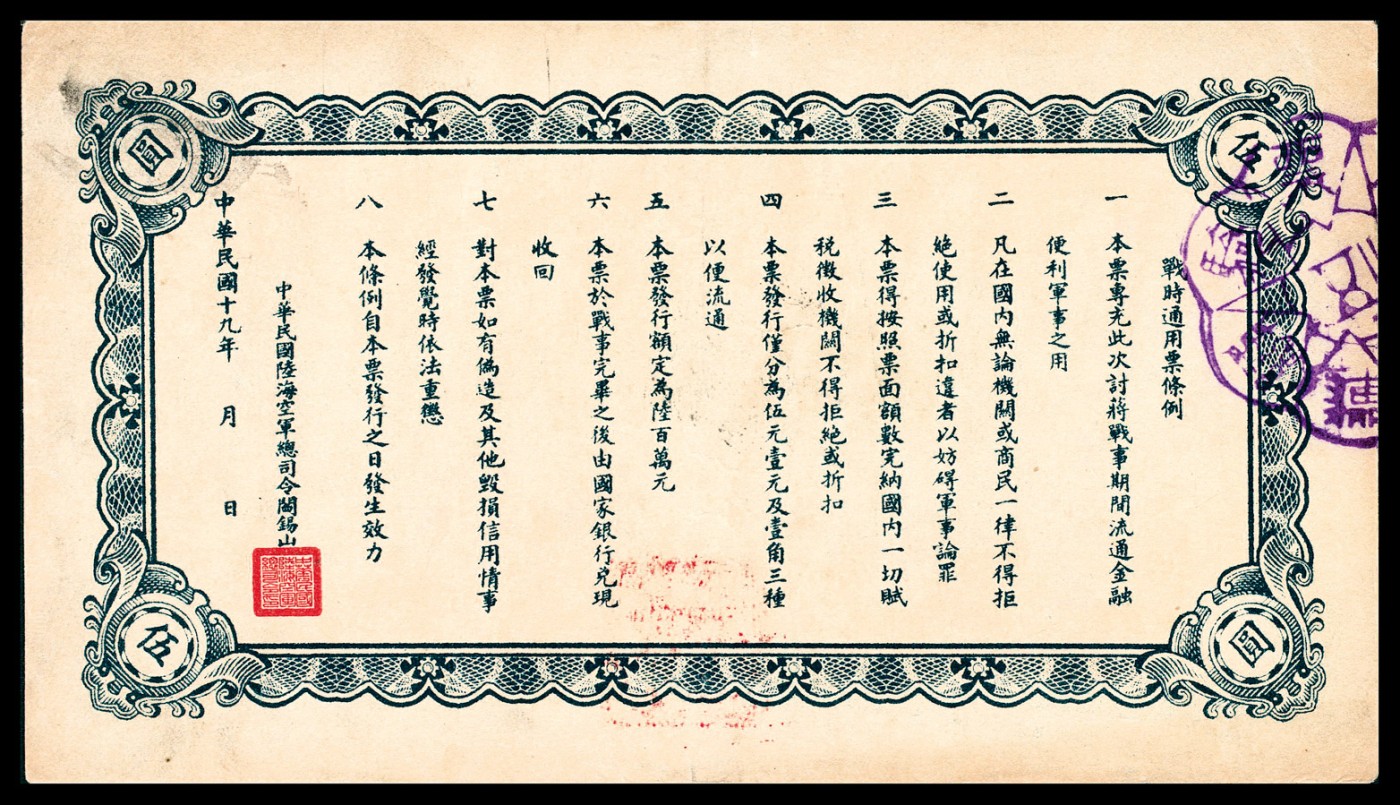 戰時通用票條例
一 本票專充此次討蔣戰事期間流通金融
便利軍事之用
二 凡在國內無論機關或商民一律不得拒
絕使用或折扣違者以妨碍軍事論罪
三 本票得按照票面額數完納國內一切賦
税徵收機關不得拒絕或折扣
四 本票發行僅分為伍元壹元及壹角三種
以便流通
五 本票發行額定為陸百萬元
六 本票於戰事完畢之後由國家銀行兑現
收回
七 對本票如有偽造及其他毀損信用情事
經發覺時依法重懲
八 本條例自本票發行之日發生效力
中華民國陸海空軍總司令閻錫山
中華民國十九年 月 日
伍
圓
圓
伍